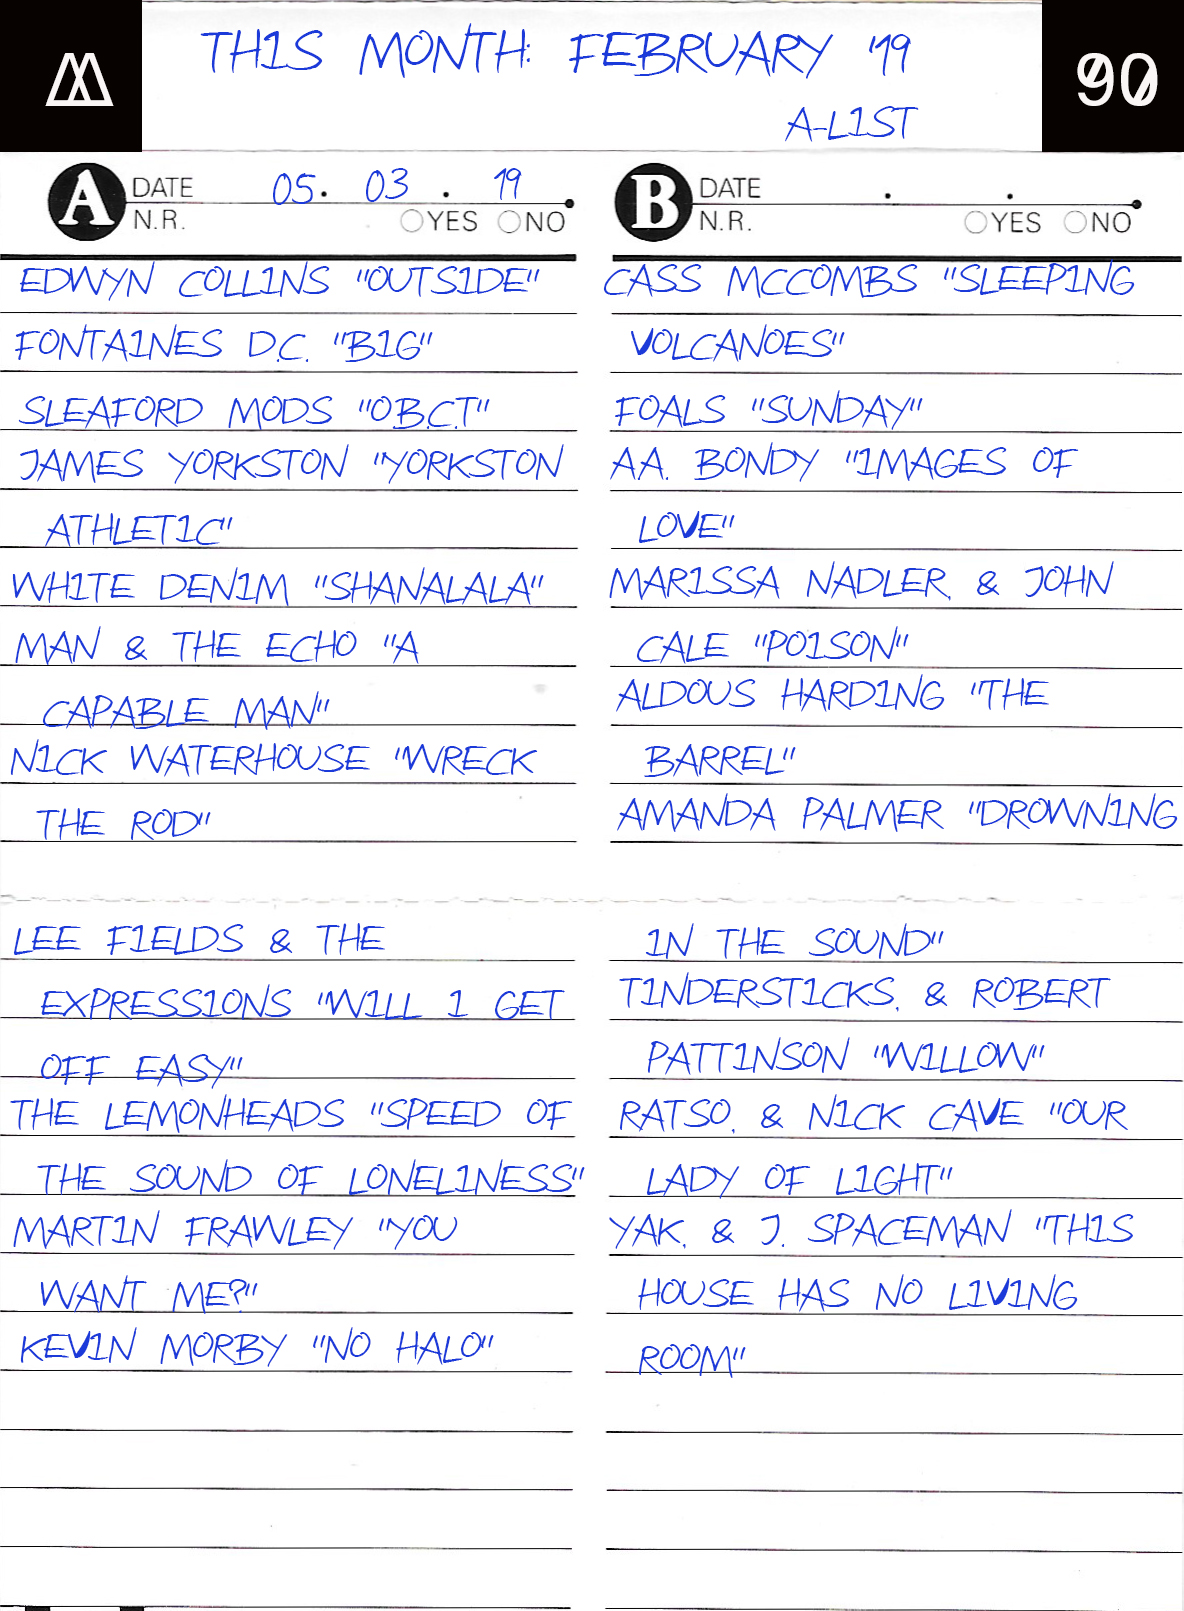 THIS MONTH: FEBRUARY '19
90
A-LIST
A DATE 05. 03. 19
N.R. YES NO
EDWYN COLLINS "OUTSIDE"
FONTAINES D.C. "BIG"
SLEAFORD MODS "O.B.C.T"
JAMES YORKSTON "YORKSTON
ATHLETIC"
WHITE DENIM "SHANALALA"
MAN & THE ECHO "A
CAPABLE MAN"
NICK WATERHOUSE "WRECK
THE ROD"
LEE FIELDS & THE
EXPRESSIONS "WILL I GET
OFF EASY"
THE LEMONHEADS "SPEED OF
THE SOUND OF LONELINESS"
MARTIN FRAWLEY "YOU
WANT ME?"
KEVIN MORBY "NO HALO"
B DATE . .
N.R. YES NO
CASS MCCOMBS "SLEEPING
VOLCANOES"
FOALS "SUNDAY"
A.A. BONDY "IMAGES OF
LOVE"
MARISSA NADLER, & JOHN
CALE "POISON"
ALDOUS HARDING "THE
BARREL"
AMANDA PALMER "DROWNING
IN THE SOUND"
TINDERSTICKS, & ROBERT
PATTINSON "WILLOW"
RATSO, & NICK CAVE "OUR
LADY OF LIGHT"
YAK, & J. SPACEMAN "THIS
HOUSE HAS NO LIVING
ROOM"